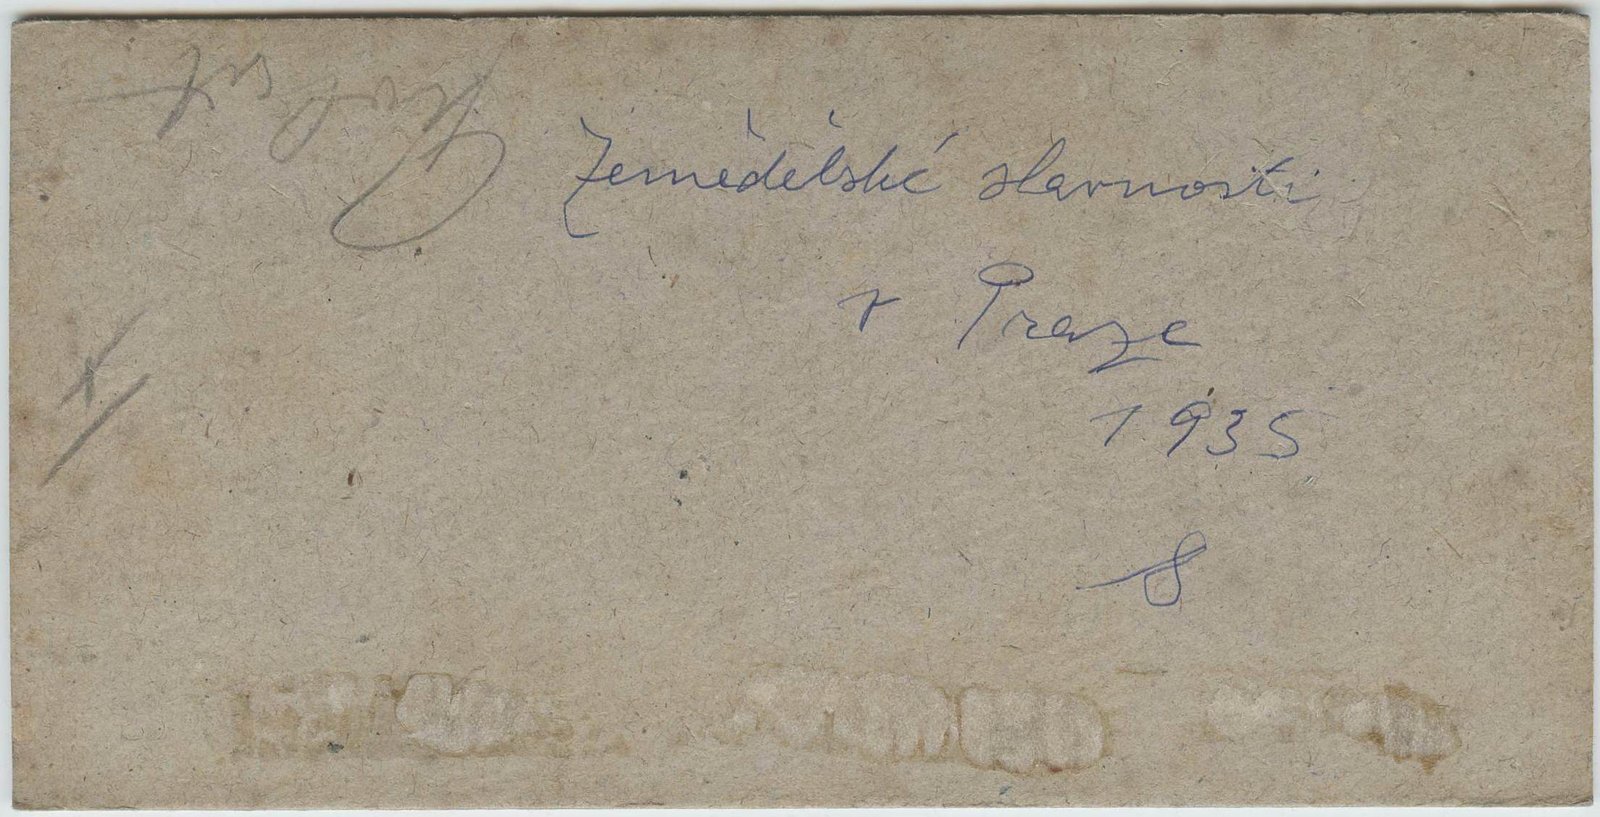 Zemědělské slavnosti
v Praze
1935
8